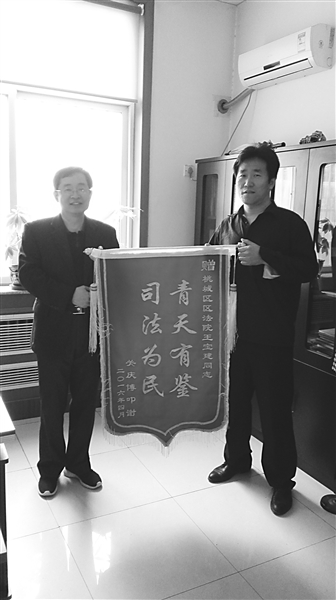 赠 桃城区区法院王宝建同志
青天有鉴
司法为民
庆博叩谢
二〇一六年四月